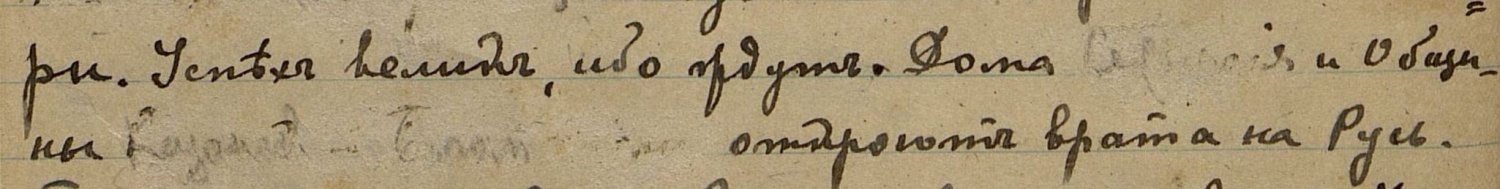 ри. Успѣхъ великъ, ибо ждутъ. Дома и Общи-
ны откроютъ врата на Русь.